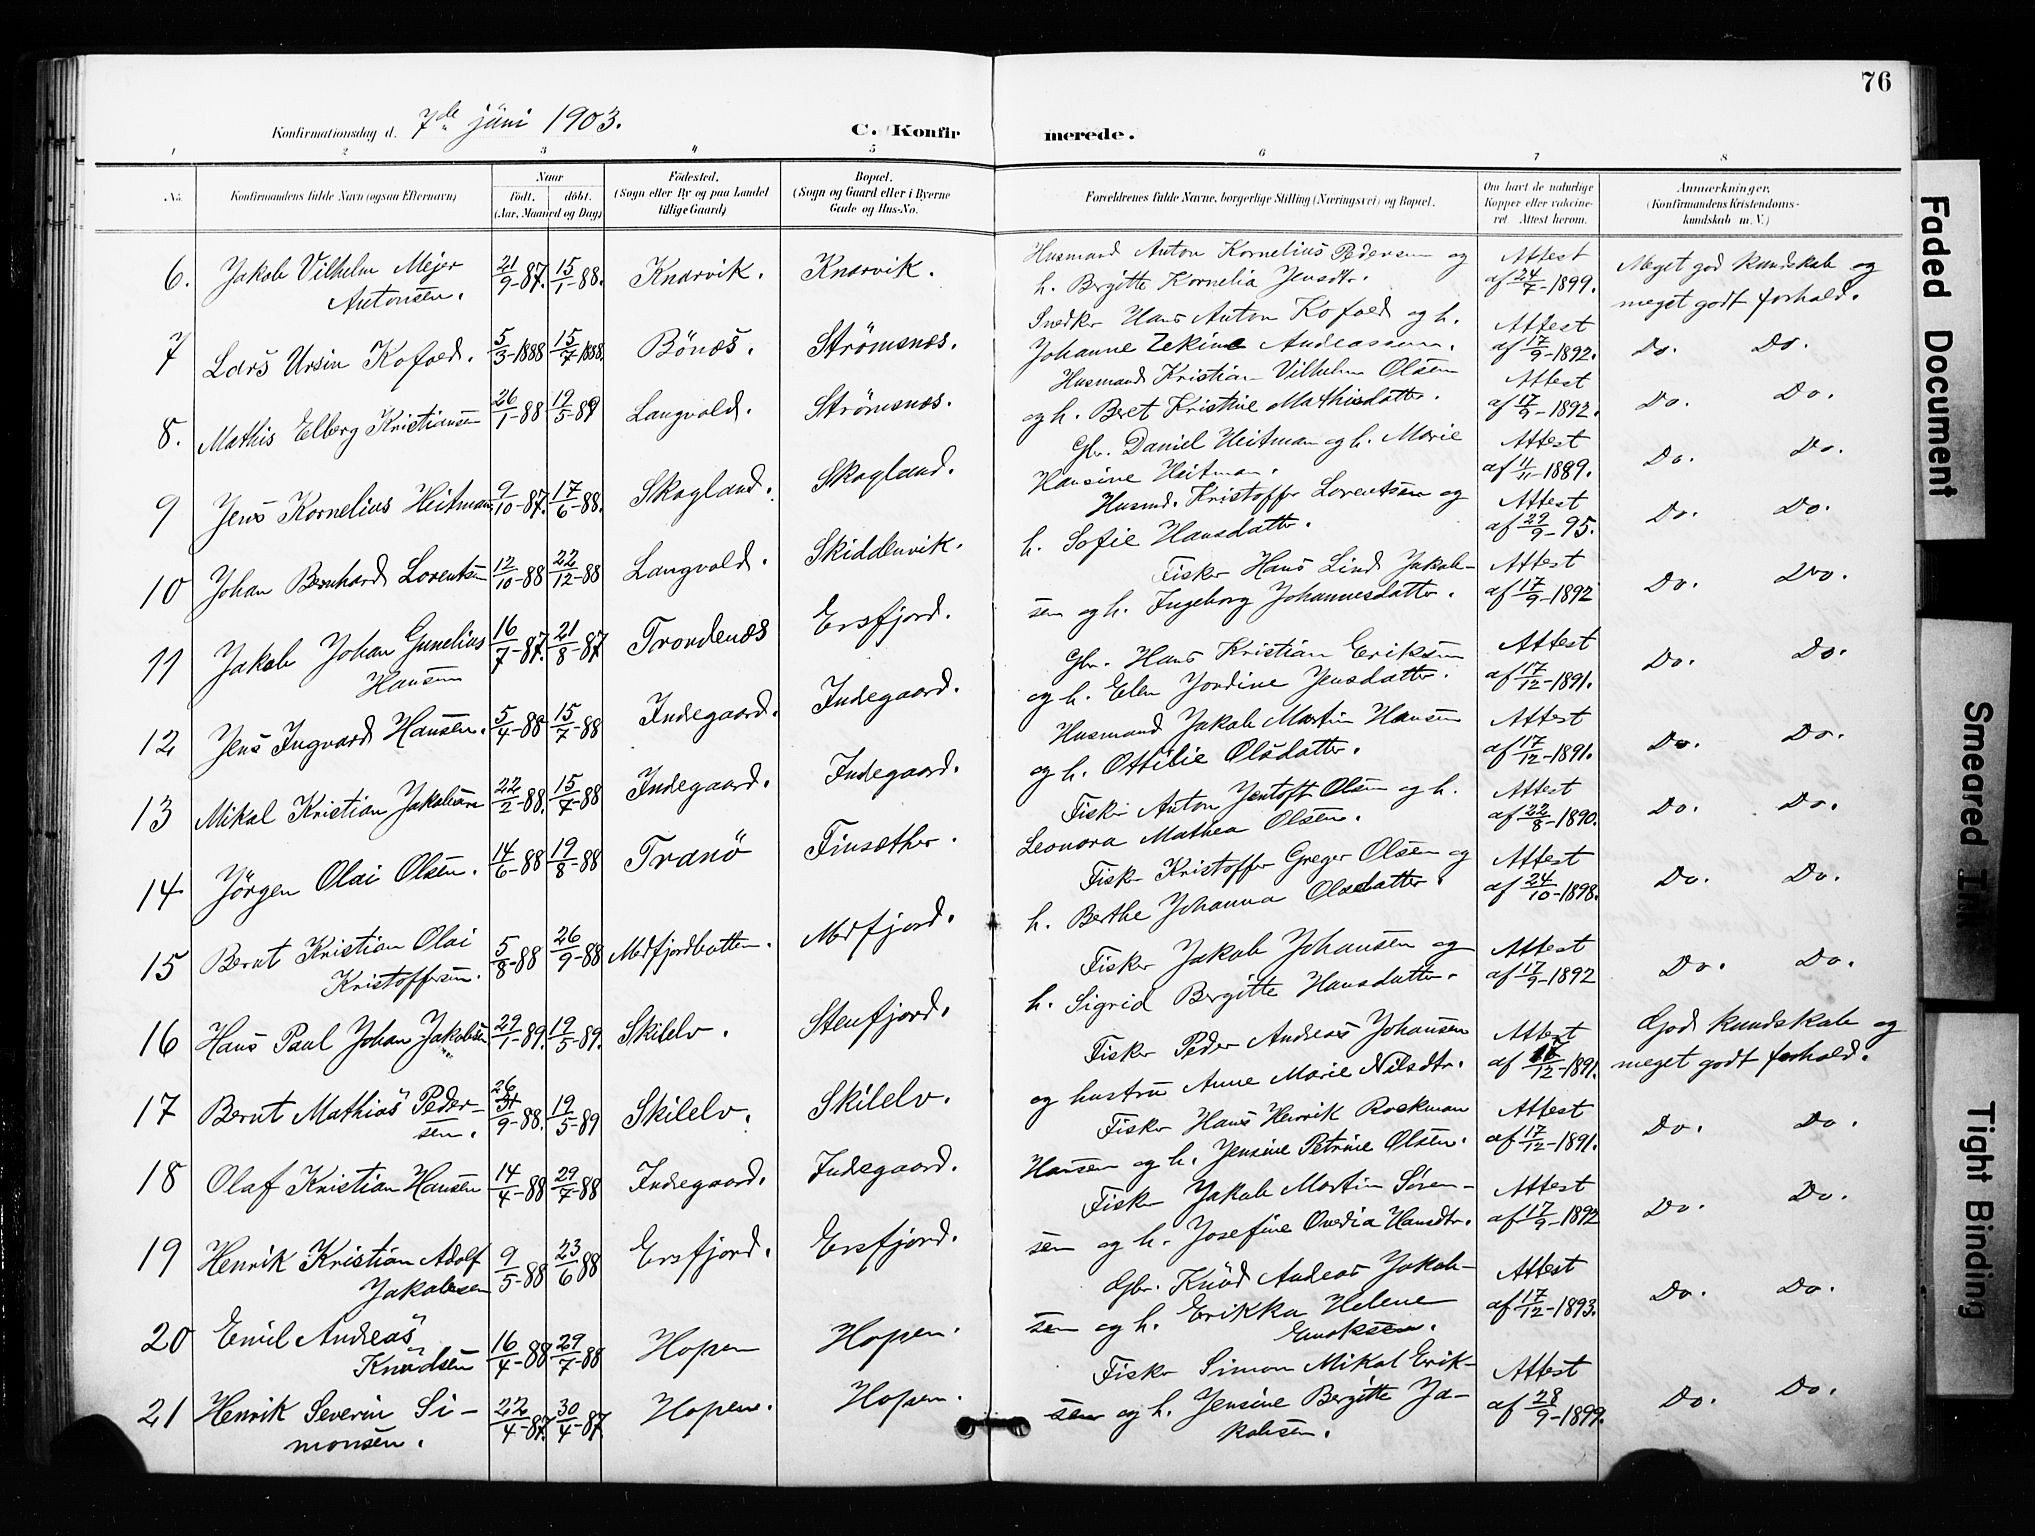 76
Konfirmationsdag d. 7de juni 1903.
C. Konfirmerede.
1 2 3 4 5 6 7 8
No.
Konfirmandens fulde Navn (ogsaa Efternavn)
Naar
Födt. döbt.
(Aar, Maaned og Dag)
Födested.
(Sogn eller By og paa Landet
tillige Gaard)
Bopæl.
(Sogn og Gaard eller i Byerne
Gade og Hus-No.
Forældrenes fulde Navne, borgerlige Stilling (Næringsvei) og Bopæl.
Om havt de naturlige
Kopper eller vakcine-
ret. Attest herom.
Anmærkninger.
(Konfirmandens Kristendoms-
kundskab m. V.)
6. Jakob Vilhelm Mejer
Antonsen. 21/9-87. 15/1-88. Knarvik. Knarvik.
Husmand Anton Kornelius Pedersen og
h. Bergitte Kornelia Jensdtr.
Attest
af 24/7-1899.
Meget god kundskab og
meget godt forhold.
7 Lars Ursin Kofoed. 5/3-1888 15/7-1888. Bönes. Strömsnes.
Snedker Hans Anton Kofoed og h.
Johanne Zekine Andreassen.
Attest
af 17/9-1892.
Do. Do.
8. Mathis Elberg Kristiansen 26/1-88 19/5-89 Langvold. Strömsnes.
Husmand Kristian Vilhelm Olsen
og h. Beret Kristine Mathisdatter.
Attest
af 17/9-1892.
Do. Do.
9 Jens Kornelius Heitman 9/10-87. 17/6-88. Skogland. Skogland.
Gbr. Daniel Heitman og h. Marie
Hansine Heitman.
Attest
af 11/11-1889.
Do. Do.
10 Johan Bernhard Lorentsen 12/10-88 22/12-88 Langvold. Skiddenvik.
Husmd. Kristoffer Lorentsen og
h. Sofie Hansdatter.
Attest
af 29/9-95.
Do. Do.
11 Jakob Johan Gunelius
Hansen 16/7-87. 21/8-87 Trondenes Ersfjord.
Fisker Hans Lind Jakob-
sen og h. Ingeborg Johannesdatter.
Attest
af 17/9-1892
Do. Do.
12 Jens Ingvard Hansen. 5/4-88 15/7-88 Indegaard. Indegaard.
Gbr. Hans Kristian Eriksen
og h. Elen Jordine Jensdatter.
Attest
af 17/12-1891.
Do. Do.
13 Mikal Kristian Jakobsen 22/2-88. 15/7-88 Indegaard. Indegaard.
Husmand Jakob Martin Hansen
og h. Ottilie Olsdatter.
Attest
af 17/12-1891.
Do. Do.
14 Jörgen Olai Olsen. 14/6-88 19/8-88 Tranö Finsæther.
Fisker Anton Jentoft Olsen og h.
Leonora Mathea Olsen.
Attest
af 22/8-1890.
Do. Do.
15 Bernt Kristian Olai
Kristoffersen. 5/8-88 26/9-88 Medfjordbotten. Medfjord.
Fisker Kristoffer Greger Olsen og
h. Berthe Johanna Olsdatter.
Attest
af 24/10-1898.
Do. Do.
16 Hans Paul Johan Jakobsen 29/1-89. 19/5-89. Skilelv. Stenfjord.
Fisker Jakob Johansen og
h. Sigrid Bergitte Hansdatter.
Attest
af 17/9-1892
Do. Do.
17 Bernt Mathias Peder-
sen. 26/9-88. 19/5-89 Skilelv. Skilelv.
Fisker Peder Andreas Johansen
og hustru Anne Marie Nilsdtr.
Attest
af 17/12-1891.
God kundskab og
meget godt forhold.
18 Olaf Kristian Hansen 14/4-88 29/7-88 Indegaard. Indegaard.
Fisker Hans Henrik Rockman
Hansen og h. Jensine Petrine Olsen.
Attest
af 17/12-1891.
Do. Do.
19 Henrik Kristian Adolf
Jakobsen 9/5-88 23/6-88 Ersfjord. Ersfjord.
Fisker Jakob Martin Sören-
sen og h. Josefine Ovedia Hansdtr.
Attest
af 17/9-1892
Do. Do.
20 Emil Andreas
Knudsen 16/4-88 29/7-88 Hopen Hopen.
Gbr. Knud Andreas Jakob-
sen og h. Erikka Helene
Enoksen.
Attest
af 17/12-1893.
Do. Do.
21 Henrik Severin Si-
monsen. 22/4-87. 30/4-87 Hopen. Hopen.
Fisker Simon Mikal Erik-
sen og h. Jensine Bergitte Ja-
kobsen.
Attest
af 28/9-1899.
Do. Do.
Faded Document
Smeared Ink
Tight Binding